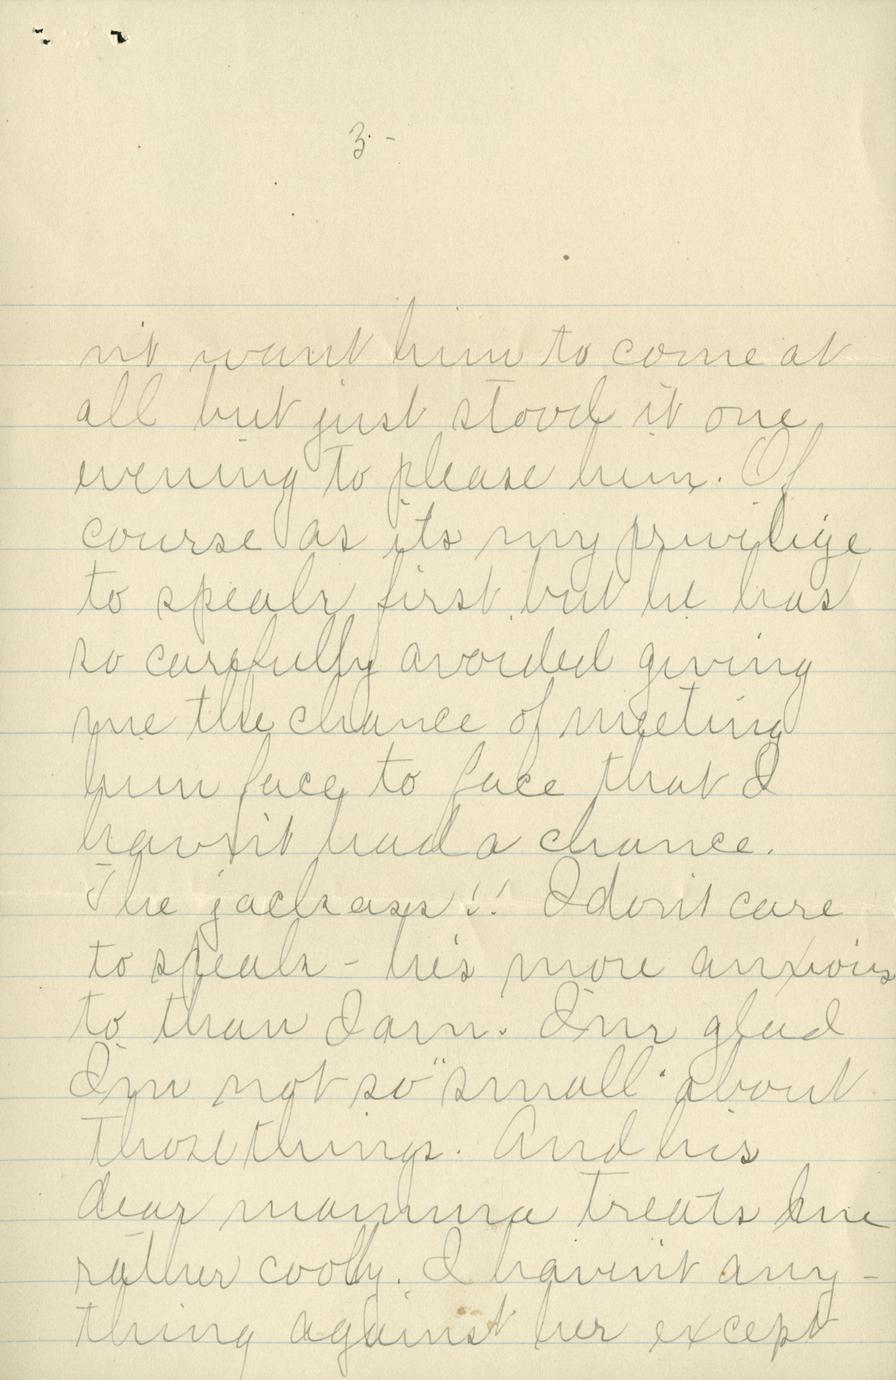 3-
n't want him to come at
all but just stood it one
evening to please him. Of
course as its my privilige
to speak first but he has
so carefully avoided giving
me the chance of meeting
him face to face that I
havn't had a chance.
The jackass!! I don't care
to speak - he's more anxious
to than I am. I'm glad
I'm not so "small" about
those things. And his
dear mamma treats me
rather coolly. I haven't any-
thing against her except